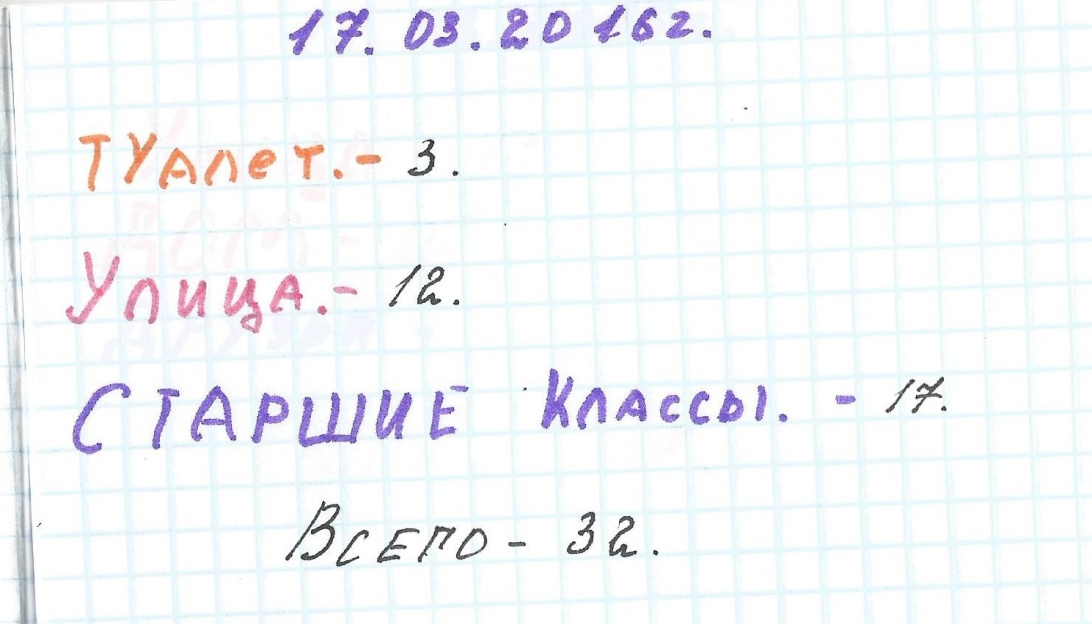 17.03.2016г.
Туалет.- 3.
Улица.- 12.
СТАРШИЕ КЛАССЫ. - 17.
Всего - 32.